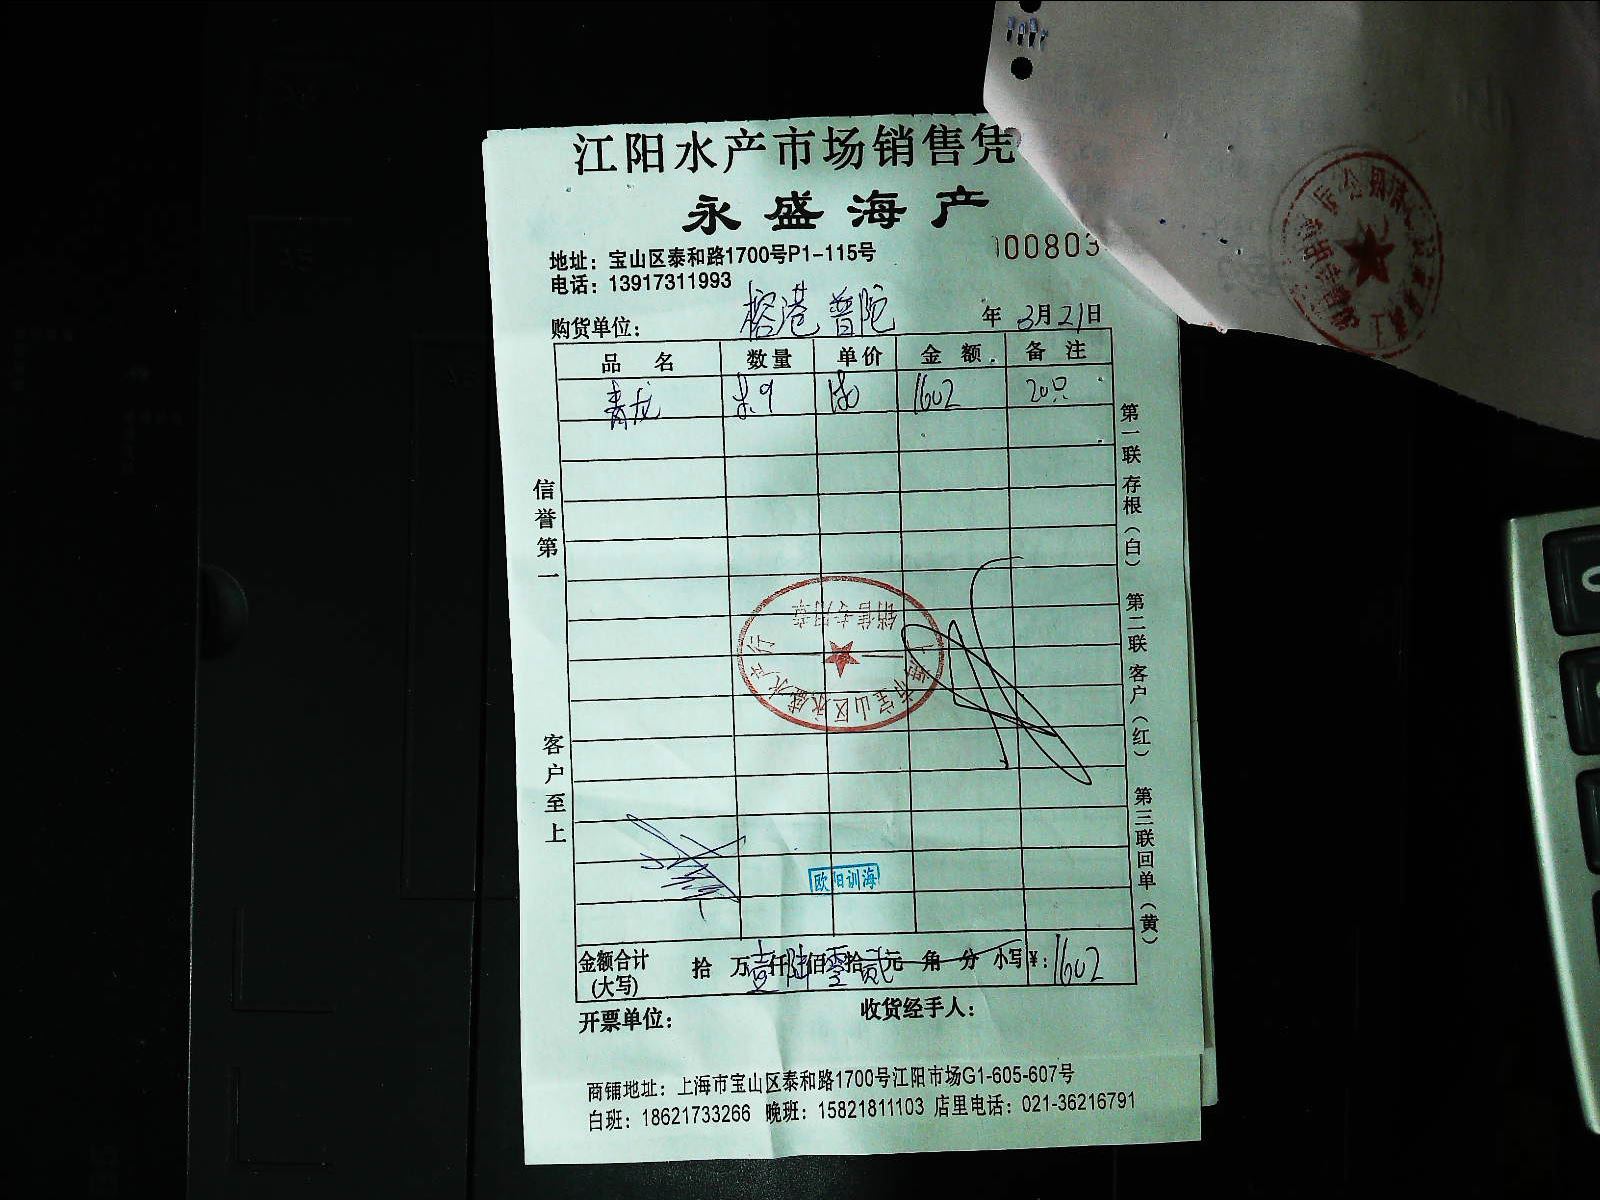 江阳水产市场销售凭
永盛海产
地址：宝山区泰和路1700号P1-115号
00803
电话：13917311993
购货单位：榕港 普陀 年 3月21日
品名 数量 单价 金额 备注
青龙 8.9 180 1602 20只
信誉第一
客户至上
第一联 存根（白） 第二联 客户（红） 第三联 回单（黄）
销售专用章
上海市宝山区永盛水产行
欧阳训海
金额合计（大写） 拾 万 壹仟 陆佰 零拾 贰元 角 分 小写¥：1602
开票单位： 收货经手人：
商铺地址：上海市宝山区泰和路1700号江阳市场G1-605-607号
白班：18621733266 晚班：15821811103 店里电话：021-36216791